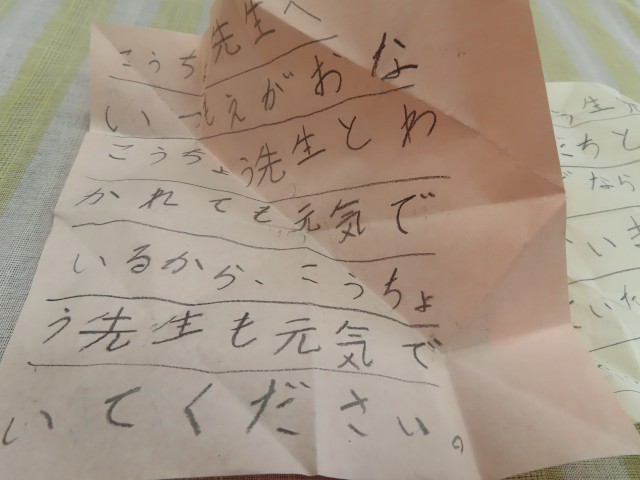 こうち先生へ
いつもえがおな
こうちょう先生とわ
かれても元気で
いるから、こうちょ
う先生も元気で
いてください。
生
ちと
なら